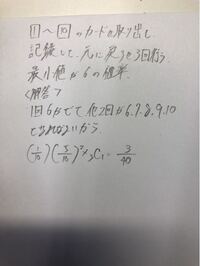 1 へ 10 のカードを取り出し
記録して、元に戻すを3回行う
最小値が6の確率
<解答>
1回6がでて他2回が6.7.8.9.10
でなければよいから
(1/10)(5/10)²×₃C₁ = 3/40